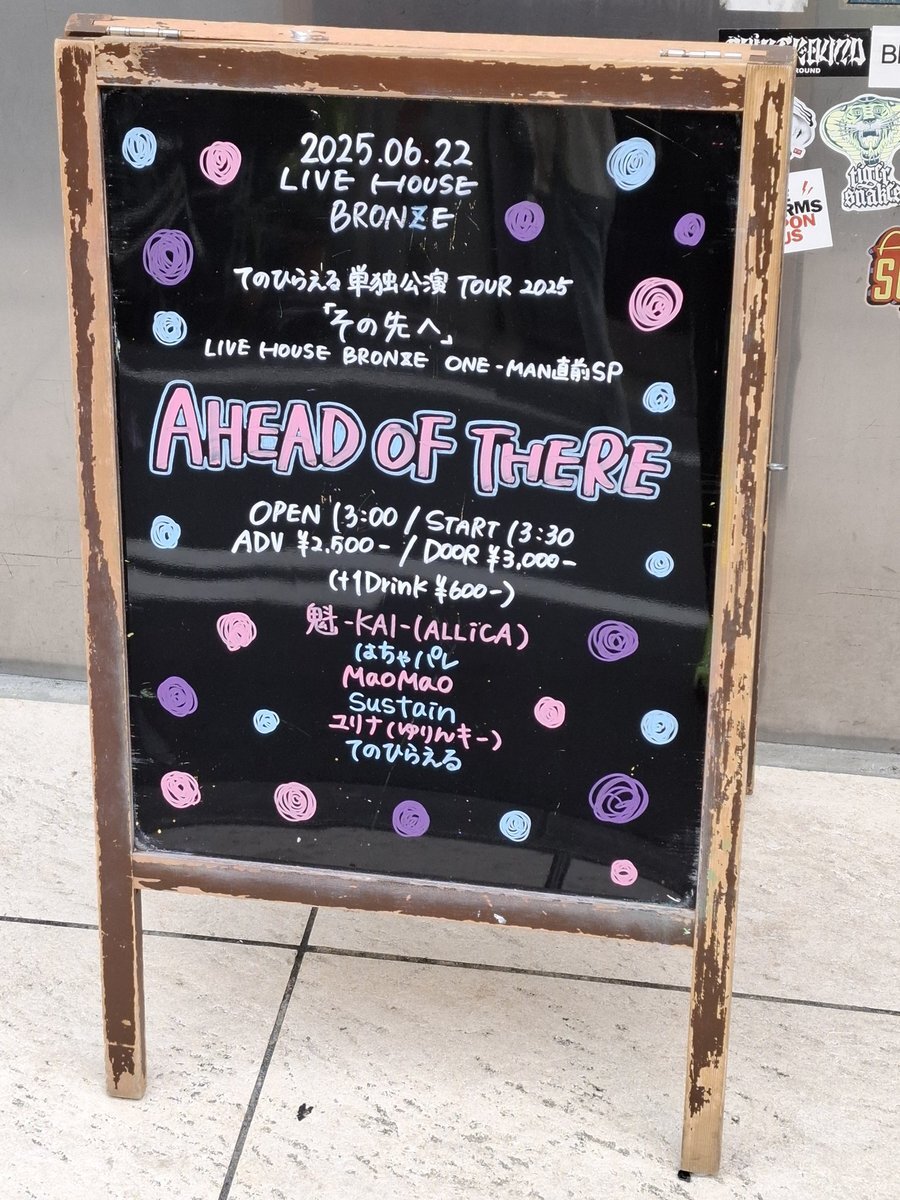 2025.06.22
LIVE HOUSE
BRONZE
てのひらえる 単独公演 TOUR 2025
「その先へ」
LIVE HOUSE BRONZE ONE-MAN直前SP
AHEAD OF THERE
OPEN 13:00 / START 13:30
ADV ¥2,500- / DOOR ¥3,000-
(+1Drink ¥600-)
魁-KAI-(ALLiCA)
はちゃパレ
MaoMao
Sustain
ユリナ(ゆりんキー)
てのひらえる
tiger
snake